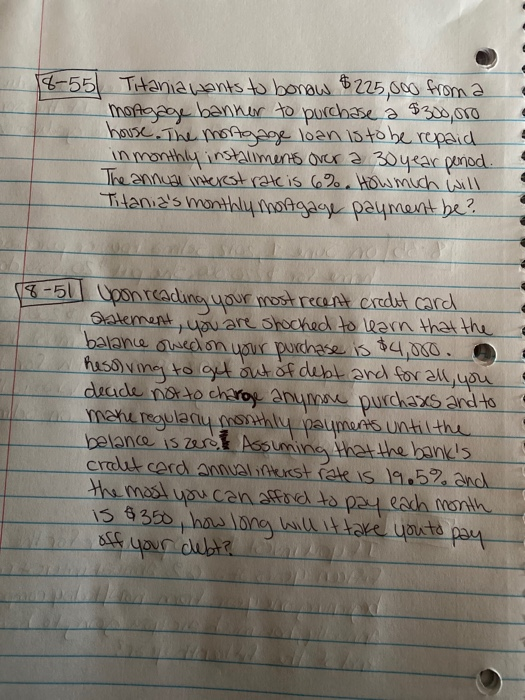 8-55 Titania wants to borrow $225,000 from a
mortgage banker to purchase a $300,000
house. The mortgage loan is to be repaid
in monthly installments over a 30 year period.
The annual interest rate is 6%. How much will
Titania's monthly mortgage payment be?
8-51 Upon reading your most recent credit card
statement, you are shocked to learn that the
balance owed on your purchase is $4,000.
Resolving to get out of debt and for all, you
decide not to charge anymore purchases and to
make regularly monthly payments until the
balance is zero. Assuming that the bank's
credit card annual interest rate is 19.5% and
the most you can afford to pay each month
is $350, how long will it take you to pay
off your debt?